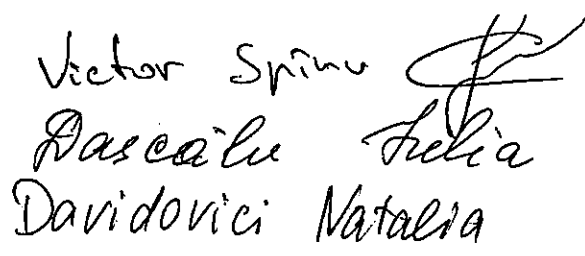 Victor Spînu
Dascălu Iulia
Davidovici Natalia